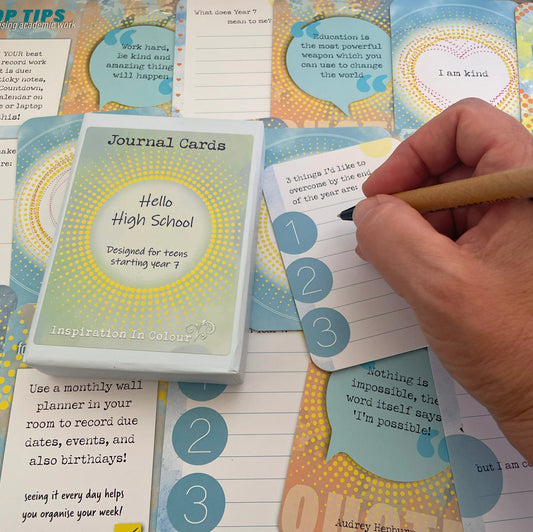 OP TIPS
ising academic work
YOUR best
record work
t is due:
ticky notes,
Countdown,
calendar on
e or laptop
this!
Work hard,
be kind and
amazing thing
will happen
What does Year 7
mean to me?
Education is
the most powerful
weapon which you
can use to change
the world
I am kind
ake
are:
Journal Cards
Hello
High School
Designed for teens
starting year 7
Inspiration In Colour
3 things I'd like to
overcome by the end
of the year are:
1
2
3
Use a monthly wall
planner in your
room to record due
dates, events, and
also birthdays!
seeing it every day helps
you organise your week!
2
3
Nothing is
impossible, the
word itself says
'I'm possible!
QUOTE
Audrey Hepburn
but I am c